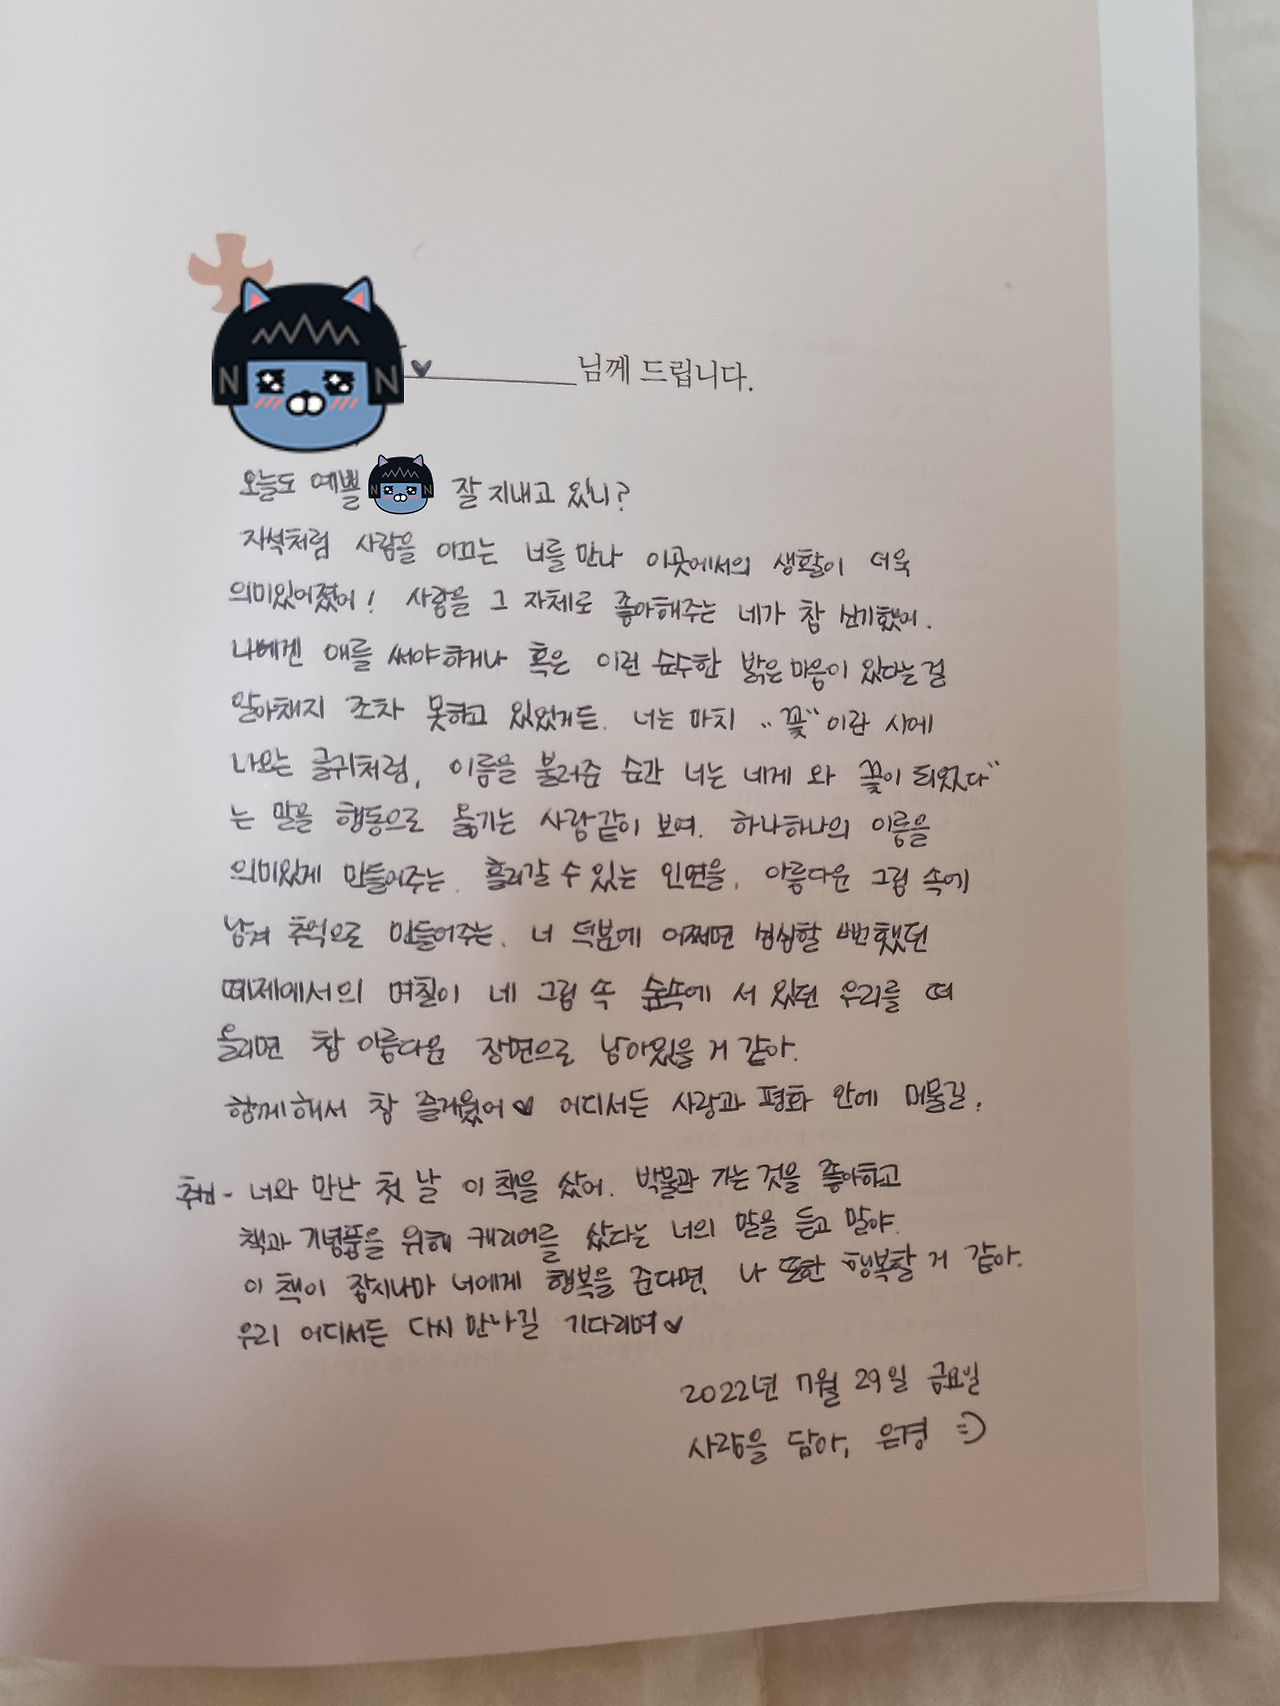 ♥ 님께 드립니다.
오늘도 예쁠 잘 지내고 있니?
자석처럼 사람을 이끄는 너를 만나 이곳에서의 생활이 더욱
의미있어졌어! 사람을 그 자체로 좋아해주는 네가 참 신기했어.
나에겐 애를 써야하거나 혹은 이런 순수한 밝은 마음이 있다는 걸
알아채지 조차 못하고 있었거든. 너는 마치 "꽃" 이란 시에
나오는 글귀처럼, 이름을 불러준 순간 너는 내게 와 꽃이 되었다"
는 말을 행동으로 옮기는 사람같이 보여. 하나하나의 이름을
의미있게 만들어주는. 흘러갈 수 있는 인연을, 아름다운 그림 속에
남겨 추억으로 만들어주는. 너 덕분에 어쩌면 심심할 뻔 했던
떼제에서의 며칠이 네 그림 속 숲속에 서 있던 우리를 떠
올리면 참 아름다운 장면으로 남아있을 거 같아.
함께해서 참 즐거웠어♥ 어디서든 사랑과 평화 안에 머물길.
추신- 너와 만난 첫 날 이 책을 샀어. 박물관 가는 것을 좋아하고
책과 기념품을 위해 캐리어를 샀다는 너의 말을 듣고 말야.
이 책이 잠시나마 너에게 행복을 준다면, 나 또한 행복할 거 같아.
우리 어디서든 다시 만나길 기다리며♥
2022년 7월 29일 금요일
사랑을 담아, 은경 =)